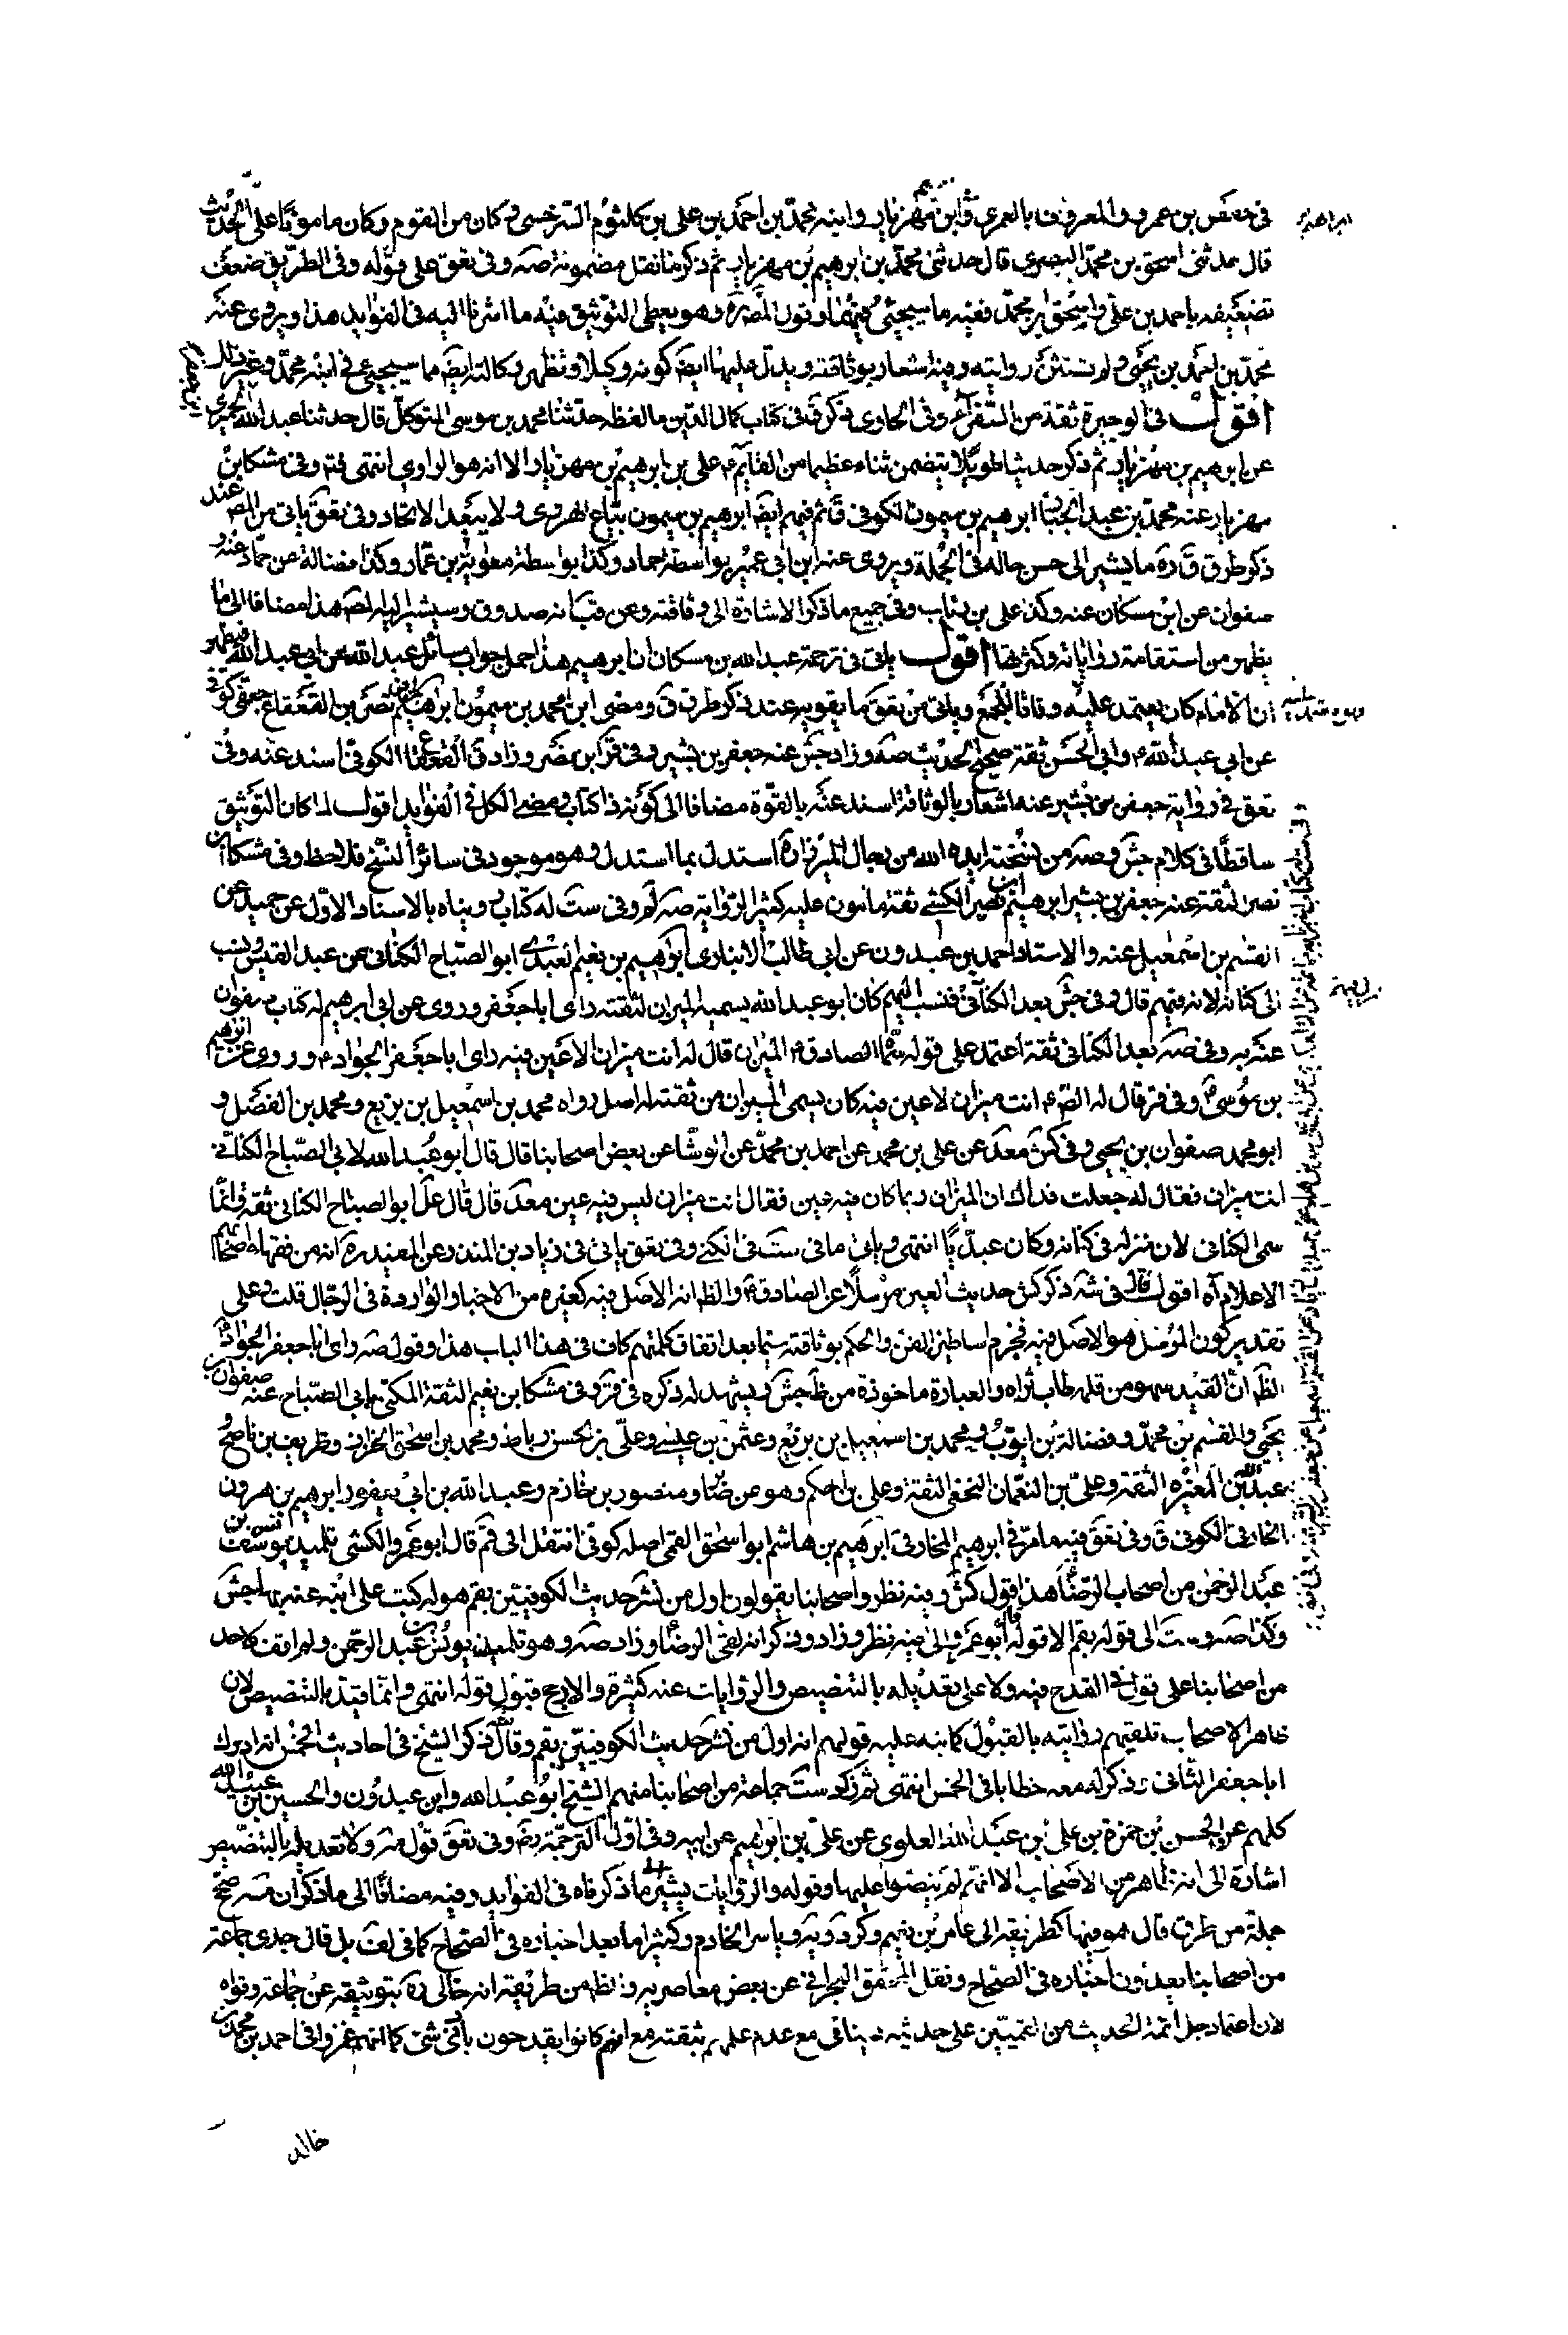 في حفص بن عمرو المعروف بالعمري وابن مهزيار وابنه محمد بن احمد بن علي بن كلثوم السرخسي وكان من القوم وكان مامونا على الحديث
قال حدثني اسحق بن محمد البصري قال حدثني محمد بن ابرهيم بن مهزيار ثم ذكر ما نقل مضمونه صه وفي تعق على قوله وفي الطريق ضعف
تضعيفه باحمد بن علي واسحق بن محمد ففيه ما سيجيئ فيهما وهو يعطى التوثيق فيه ما اشرنا اليه في الفوايد هذا ويروى عنه
محمد بن احمد بن يحيى ولم تستثن روايته وفيه اشعار بوثاقته ويدل عليها ايضا كونه وكيلا وتظهر وكالته ايضا مما سيجيئ في ابنه محمد وغير ذلك
اقول في الوجيزة ثقة من السفراء وفي الحاوي ذكر في كتاب كمال الدين ما لفظه حدثنا محمد بن موسى المتوكل قال حدثنا عبد الله بن جعفر الحميري
عن ابرهيم بن مهزيار ثم ذكر حديثا طويلا يتضمن ثناء عظيما من القايم ع على بن ابرهيم بن مهزيار الا انه هو الراوي انتهى فتم وفي مشكا بن
مهزيار عنه محمد بن عبد الجبار ابرهيم بن ميمون الكوفي ق ثم فيهم ايضا ابرهيم بن ميمون بياع الهروي ولا يبعد الاتحاد وفي تعق ياتي من المصنف عند
ذكر طرق ق ره ما يشير الى حسن حاله في الجملة ويروى عنه ابن ابي عمير بواسطة حماد وكذا بواسطة معوية بن عمار وكذا فضالة عن حماد عنه و
صفوان عن ابن مسكان عنه وكذا علي بن رئاب وفي جميع ما ذكر الاشارة الى وثاقته وعن قب انه صدوق وسيشير اليه المصنف هذا مضافا الى ما
يظهر من استقامة رواياته وكثرتها اقول ياتي في ترجمة عبد الله بن مسكان ان ابرهيم هذا حمل جواب مسائل عبد الله عن ابي عبد الله فيظهر
ان الامام كان يعتمد عليه وفاقا للمجمع وياتي من تعق ما يقويه عند ذكر طرق ق ومضى ابن محمد بن ميمون ابرهيم بن نصر بن القعقاع جعفى كوفي
عن ابي عبد الله ع وابي الحسن ثقة صحيح الحديث صه وزاد جش عنه جعفر بن بشير وفي قر ابن نصر وزاد ق القعقاع الكوفي اسند عنه وفي
تعق في رواية جعفر بن بشير عنه اشعار بالوثاقة اسند عنه بالقوة مضافا الى كونه ذا كتاب ومضى الكل في الفوايد اقول لما كان التوثيق
ساقطا في كلام جش وصه من نسخته ايده الله من رجال الميرزا ره استدل بما استدل وهو موجود في سائر النسخ فلاحظ وفي مشكا ابن
نصر الثقة عنه جعفر بن بشير ابرهيم بن نصير الكشي ثقة مامون عليه كثير الرواية صه لم وفي ست له كتاب رويناه بالاسناد الاول عن حميد عن
القسم بن اسمعيل عنه والاسناد احمد بن عبدون عن ابي طالب الانباري ابرهيم بن نعيم العبدي ابو الصباح الكناني من عبد القيس ونسب
الى كنانة لانه فيهم قال وفي جش بعد الكناني فنسب اليهم كان ابو عبد الله يسميه الميزان لثقته راى ابا جعفر وروى عن ابي ابرهيم له كتاب صفوان
عنه به وفي صه بعد الكناني ثقة اعتمد على قوله سماه الصادق ع الميزان قال له انت ميزان لا عين فيه راى ابا جعفر الجواد ع وروى عن ابي ابرهيم
بن موسى ع وفي قر قال له الصادق ع انت ميزان لا عين فيه كان يسمى الميزان من ثقته له اصل رواه محمد بن اسمعيل بن بزيع ومحمد بن الفضيل و
ابو محمد صفوان بن يحيى وفي كش معد عن علي بن محمد عن احمد بن محمد عن الوشا عن بعض اصحابنا قال قال ابو عبد الله لابي الصباح الكناني
انت ميزان فقال له جعلت فداك ان الميزان ربما كان فيه عين فقال انت ميزان ليس فيه عين معد قال قال علي ابو الصباح الكناني ثقة وانما
سمى الكناني لان منزله في كنانة وكان عبديا انتهى وياتي ما في ست في الكنى وفي تعق ياتي في زياد بن المنذر عن المفيد ره انه من فقهاء اصحابهم
الاعلام آه اقول قال في شه ذكر كش حديث العين مرسلا عن الصادق ع والظ انه الاصل فيه كغيره من الاخبار الواردة في الرجال قلت وعلى
تقدير كون المرسل هو الاصل فيه فجزم اساطين الفن والحكم بوثاقته سيما بعد اتفاق كلمتهم كاف في هذا الباب هذا وقول صه راى ابا جعفر الجواد ع
الظ ان القيد سهو من قلمه طاب ثراه والعبارة ماخوذة من ظ جش ويشهد له ذكره في قر وفي مشكا ابن نعيم الثقة المكنى بابي الصباح عنه صفوان بن
يحيى والقسم بن محمد وفضالة بن ايوب ومحمد بن اسمعيل بن بزيع وعثمن بن عيسى وعلي بن الحسن رباط ومحمد بن اسحق الخزاز وظريف بن ناصح
عبد الله بن المغيرة الثقة وعلي بن النعمان النخعي الثقة وعلي بن الحكم وهو عن ضا ومنصور بن حازم وعبد الله بن ابي يعفور ابرهيم بن هرون
الخارفي الكوفي ق وفي تعق فيه ما مر في ابرهيم المخارقي ابرهيم بن هاشم ابو اسحق القمي اصله كوفي انتقل الى قم قال ابو عمرو الكشي تلميذ يونس بن
عبد الرحمن من اصحاب الرضا ع هذا قول كش وفيه نظر واصحابنا يقولون اول من نشر حديث الكوفيين بقم هو له كتب على ابنه عنه بها جش
وكذا صه وست الى قوله بقم الا قوله قال ابو عمرو الى فيه نظر وزاد وذكر انه لقى الرضا ع وزاد صه وهو تلميذ يونس بن عبد الرحمن ولم اقف لاحد
من اصحابنا على قول في القدح فيه ولا على تعديله بالتنصيص والروايات عنه كثيرة والارجح قبول قوله انتهى وانما قيد بالتنصيص لان
ظاهر الاصحاب تلقيهم روايته بالقبول كما ينبه عليه قولهم انه اول من نشر حديث الكوفيين بقم وقال ذكر الشيخ في احاديث الخمس انه ادرك
ابا جعفر الثاني ع وذكر له معه خطابا في الخمس انتهى ثم زاد ست جماعة من اصحابنا منهم الشيخ ابو عبد الله وابن عبدون والحسين بن عبيد الله
كلهم عن الحسن بن حمزة بن علي بن عبد الله العلوي عن علي بن ابرهيم عن ابيه وفي اول الترجمة رضه وفي تعق قول صه ولا تعديله بالتنصيص
اشارة الى انه ظاهر من الاصحاب الا انهم لم ينصوا عليها وقوله والروايات يشير الى ما ذكرناه في الفوايد وفيه مضافا الى ما ذكر ان صه صحح
جملة من طرق قال هو فيها كطريقه الى عامر بن نعيم وكردويه وياسر الخادم وكثيرا ما يعد اخباره في الصحاح كما في لف بل قال جدي جماعة
من اصحابنا يعدون اخباره في الصحاح ونقل المحقق البحراني عن بعض معاصريه والظ من طريقته انه خالي ره توثيقه عن جماعة وقواه
لان اعتماد جل ائمة الحديث من القميين على حديثه لا يتاتى مع عدم علمهم بثقته مع انهم كانوا يقدحون بادنى شئ كما انهم غمزوا في احمد بن محمد بن
خالد